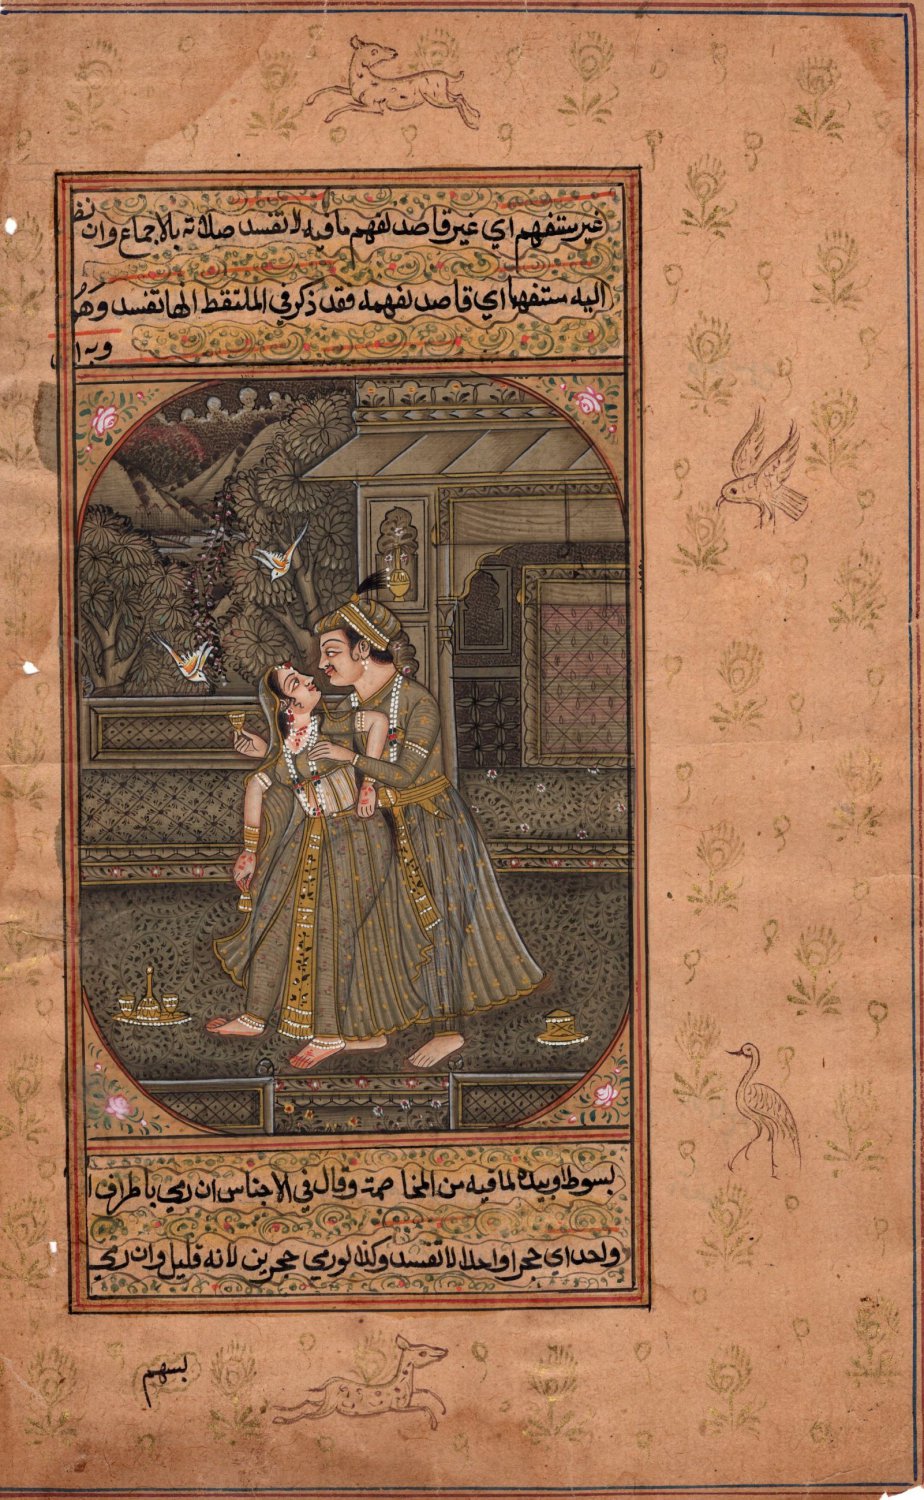 غير مستفهم اي غير قاصد لفهم ما فيه لا تفسد صلاته بالاجماع وان نظر
اليه مستفهما اي قاصد لفهمه فقد ذكر في الملتقط انها تفسد وهو
وبه ا
بسوط او بيده لما فيه من المخاصمة وقال في الاجناس ان رمي باطراف ا
واحد اي حجرا واحدا لا تفسد وكذا لو رمي حجرين لانه قليل وان رمي
بسهم